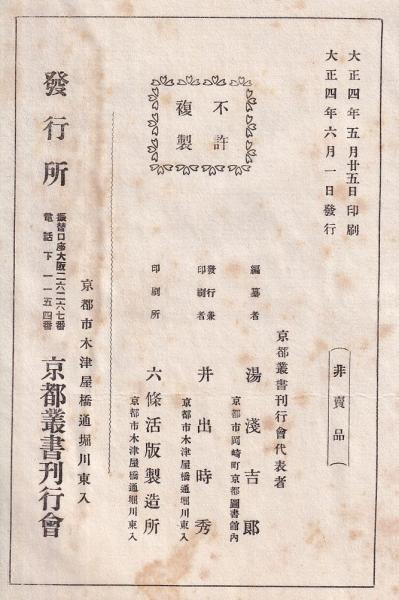 大正四年五月廿五日印刷
大正四年六月一日發行
（非賣品）
不許
複製
京都叢書刊行會代表者
編纂者 湯淺吉郎
京都市岡崎町京都圖書館内
發行兼
印刷者 井出時秀
京都市木津屋橋通堀川東入
印刷所 六條活版製造所
京都市木津屋橋通堀川東入
京都市木津屋橋通堀川東入
發行所 京都叢書刊行會
振替口座大阪二六二六七番
電話下一一五四番